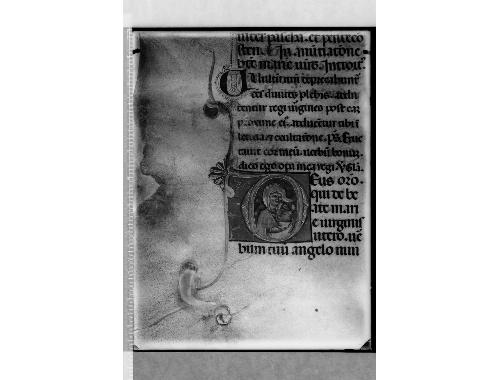 inter pascha. et penteco
sten. In anūtiatione
bte marie virḡ. Introit.
Vultū tuū deprecabunt̄
oēs divites plebis: addu
centur regi virgines post eā
proxime ei⁹ adducētur tibi ī
letitia et exultatione. ps. Eruc
tavit cor meū verbū bonū:
dico ego opa mea regi.
Deus qui de be
ate mari
e virginis
utero. ver
bum tuū angelo nun